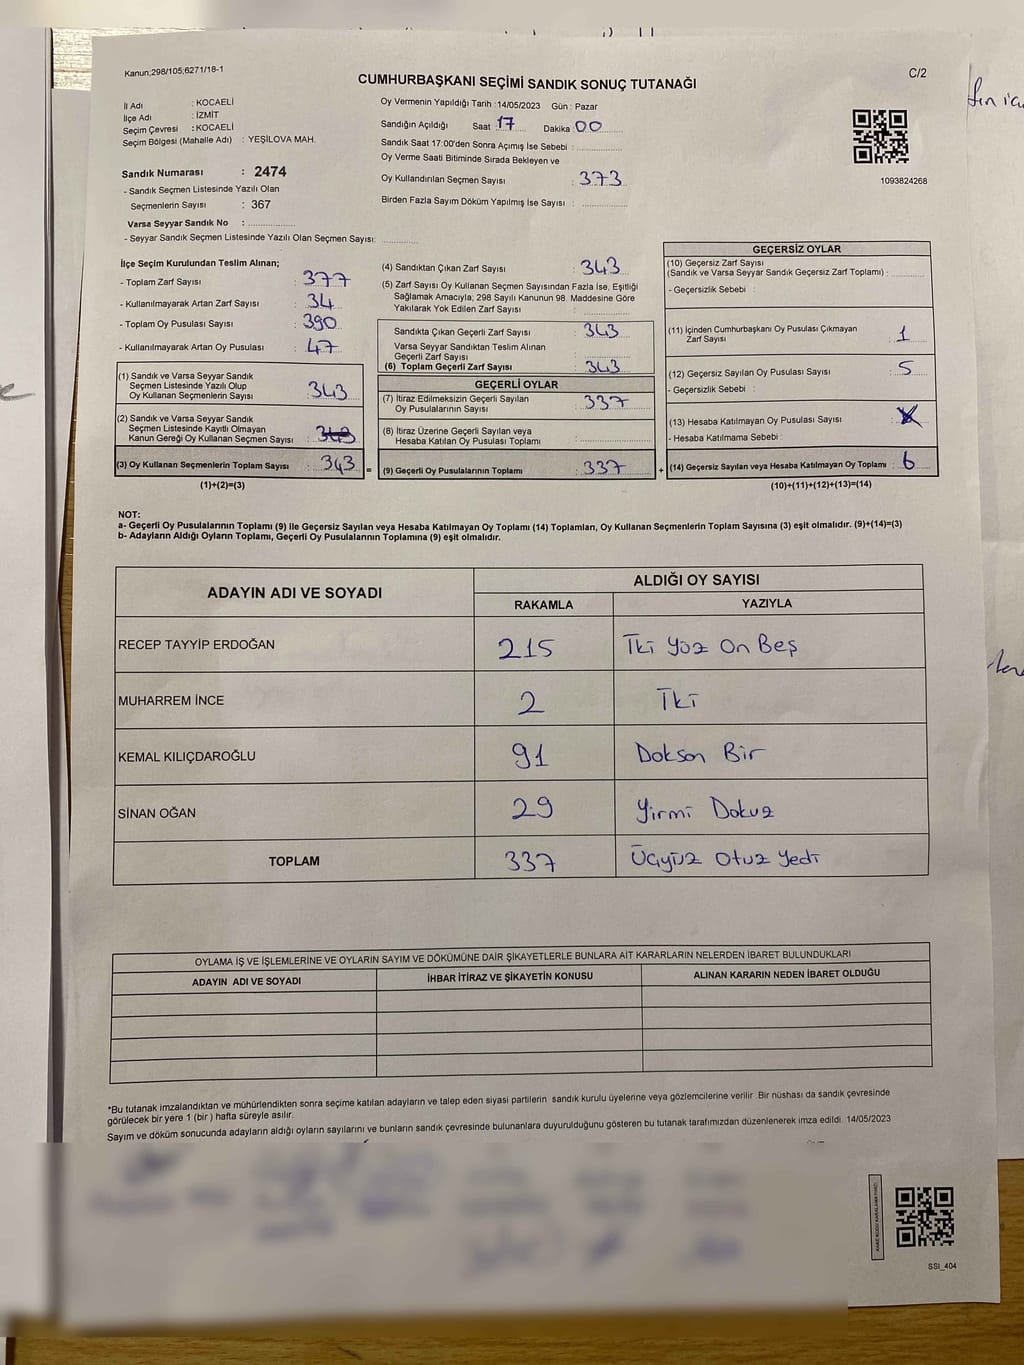 Kanun;298/105;6271/18-1
C/2
CUMHURBAŞKANI SEÇİMİ SANDIK SONUÇ TUTANAĞI
İl Adı : KOCAELİ
İlçe Adı : İZMİT
Seçim Çevresi : KOCAELİ
Seçim Bölgesi (Mahalle Adı) : YEŞİLOVA MAH.
Sandık Numarası : 2474
- Sandık Seçmen Listesinde Yazılı Olan
Seçmenlerin Sayısı : 367
Varsa Seyyar Sandık No :
- Seyyar Sandık Seçmen Listesinde Yazılı Olan Seçmen Sayısı:
Oy Vermenin Yapıldığı Tarih : 14/05/2023 Gün : Pazar
Sandığın Açıldığı Saat : 17 Dakika : 00
Sandık Saat 17:00'den Sonra Açımış İse Sebebi :
Oy Verme Saati Bitiminde Sırada Bekleyen ve
Oy Kullandırılan Seçmen Sayısı : 373
Birden Fazla Sayım Döküm Yapılmış İse Sayısı :
1093824268
İlçe Seçim Kurulundan Teslim Alınan;
- Toplam Zarf Sayısı : 377
- Kullanılmayarak Artan Zarf Sayısı : 34
- Toplam Oy Pusulası Sayısı : 390
- Kullanılmayarak Artan Oy Pusulası : 47
(1) Sandık ve Varsa Seyyar Sandık
Seçmen Listesinde Yazılı Olup
Oy Kullanan Seçmenlerin Sayısı : 343
(2) Sandık ve Varsa Seyyar Sandık
Seçmen Listesinde Kayıtlı Olmayan
Kanun Gereği Oy Kullanan Seçmen Sayısı : 343
(3) Oy Kullanan Seçmenlerin Toplam Sayısı : 343
(1)+(2)=(3)
(4) Sandıktan Çıkan Zarf Sayısı : 343
(5) Zarf Sayısı Oy Kullanan Seçmen Sayısından Fazla İse, Eşitliği
Sağlamak Amacıyla; 298 Sayılı Kanunun 98. Maddesine Göre
Yakılarak Yok Edilen Zarf Sayısı :
Sandıkta Çıkan Geçerli Zarf Sayısı : 343
Varsa Seyyar Sandıktan Teslim Alınan
Geçerli Zarf Sayısı :
(6) Toplam Geçerli Zarf Sayısı : 343
GEÇERLİ OYLAR
(7) İtiraz Edilmeksizin Geçerli Sayılan
Oy Pusulalarının Sayısı : 337
(8) İtiraz Üzerine Geçerli Sayılan veya
Hesaba Katılan Oy Pusulası Toplamı :
= (9) Geçerli Oy Pusulalarının Toplamı : 337
GEÇERSİZ OYLAR
(10) Geçersiz Zarf Sayısı
(Sandık ve Varsa Seyyar Sandık Geçersiz Zarf Toplamı) :
- Geçersizlik Sebebi :
(11) İçinden Cumhurbaşkanı Oy Pusulası Çıkmayan
Zarf Sayısı : 1
(12) Geçersiz Sayılan Oy Pusulası Sayısı : 5
- Geçersizlik Sebebi :
(13) Hesaba Katılmayan Oy Pusulası Sayısı :
- Hesaba Katılmama Sebebi :
+ (14) Geçersiz Sayılan veya Hesaba Katılmayan Oy Toplamı : 6
(10)+(11)+(12)+(13)=(14)
NOT:
a- Geçerli Oy Pusulalarının Toplamı (9) ile Geçersiz Sayılan veya Hesaba Katılmayan Oy Toplamı (14) Toplamları, Oy Kullanan Seçmenlerin Toplam Sayısına (3) eşit olmalıdır. (9)+(14)=(3)
b- Adayların Aldığı Oyların Toplamı, Geçerli Oy Pusulalarının Toplamına (9) eşit olmalıdır.
ADAYIN ADI VE SOYADI
ALDIĞI OY SAYISI
RAKAMLA YAZIYLA
RECEP TAYYİP ERDOĞAN 215 İki Yüz On Beş
MUHARREM İNCE 2 İki
KEMAL KILIÇDAROĞLU 91 Doksan Bir
SİNAN OĞAN 29 Yirmi Dokuz
TOPLAM 337 Üçyüz Otuz Yedi
OYLAMA İŞ VE İŞLEMLERİNE VE OYLARIN SAYIM VE DÖKÜMÜNE DAİR ŞİKAYETLERLE BUNLARA AİT KARARLARIN NELERDEN İBARET BULUNDUKLARI
ADAYIN ADI VE SOYADI İHBAR İTİRAZ VE ŞİKAYETİN KONUSU ALINAN KARARIN NEDEN İBARET OLDUĞU
*Bu tutanak imzalandıktan ve mühürlendikten sonra seçime katılan adayların ve talep eden siyasi partilerin sandık kurulu üyelerine veya gözlemcilerine verilir. Bir nüshası da sandık çevresinde
görülecek bir yere 1 (bir) hafta süreyle asılır.
Sayım ve döküm sonucunda adayların aldığı oyların sayılarını ve bunların sandık çevresinde bulunanlara duyurulduğunu gösteren bu tutanak tarafımızdan düzenlenerek imza edildi. 14/05/2023
SSI_404